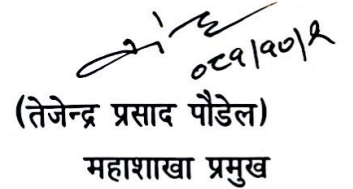 ०८१/१०/१
(तेजेन्द्र प्रसाद पौडेल)
महाशाखा प्रमुख